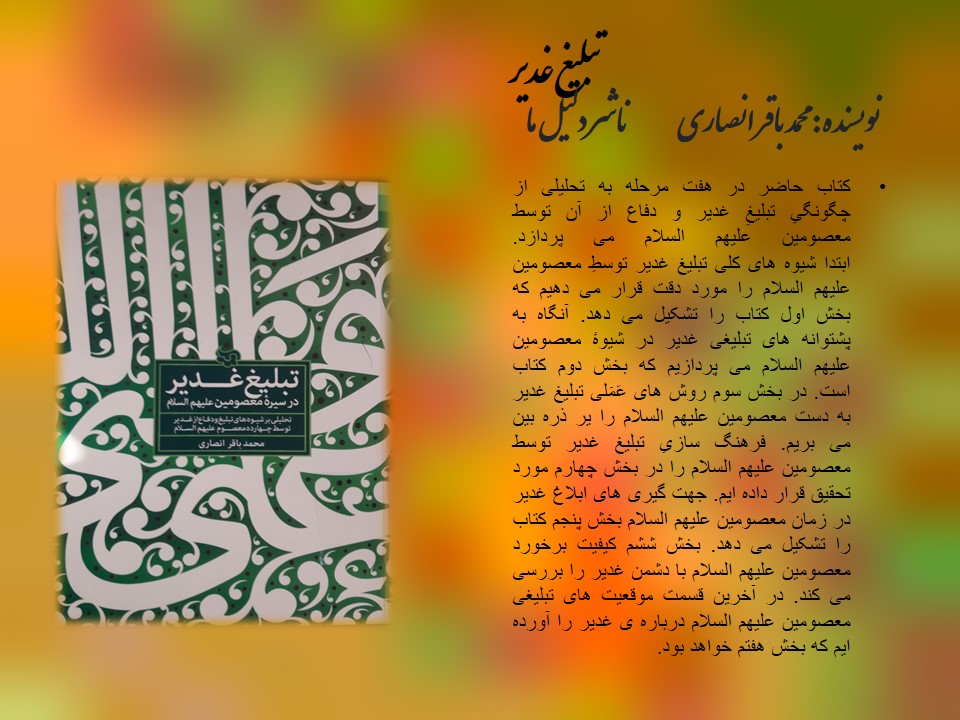 تبلیغ غدیر
نویسنده: محمد باقر انصاری ناشر دلیل ما
• کتاب حاضر در هفت مرحله به تحلیلی از
چگونگیِ تبلیغِ غدیر و دفاع از آن توسط
معصومین عَلیهم السلام می پردازد.
ابتدا شیوه های کلی تبلیغ غدیر توسطِ معصومین
علیهم السلام را مورد دقت قرار می دهیم که
بخش اول کتاب را تشکیل می دهد. آنگاه به
پشتوانه های تبلیغی غدیر در شیوۀ معصومین
علیهم السلام می پردازیم که بخش دوم کتاب
است. در بخش سوم روش های عَمَلی تبلیغ غدیر
به دست معصومین علیهم السلام را یر ذره بین
می بریم. فرهنگ سازیِ تبلیغ غدیر توسط
معصومین علیهم السلام را در بخش چهارم مورد
تحقیق قرار داده ایم. جهت گیری های ابلاغ غدیر
در زمان معصومین علیهم السلام بخش پنجم کتاب
را تشکیل می دهد. بخش ششم کیفیت برخورد
معصومین علیهم السلام با دشمن غدیر را بررسی
می کند. در آخرین قسمت موقعیت های تبلیغی
معصومین علیهم السلام درباره ی غدیر را آورده
ایم که بخش هفتم خواهد بود.
تبلیغ غـدیر
در سیرۀ معصومین علیهم السلام
تحلیلی بر شیوه های تبلیغ و دفاع از غدیر
توسط چهارده معصوم علیهم السلام
محمد باقر انصاری